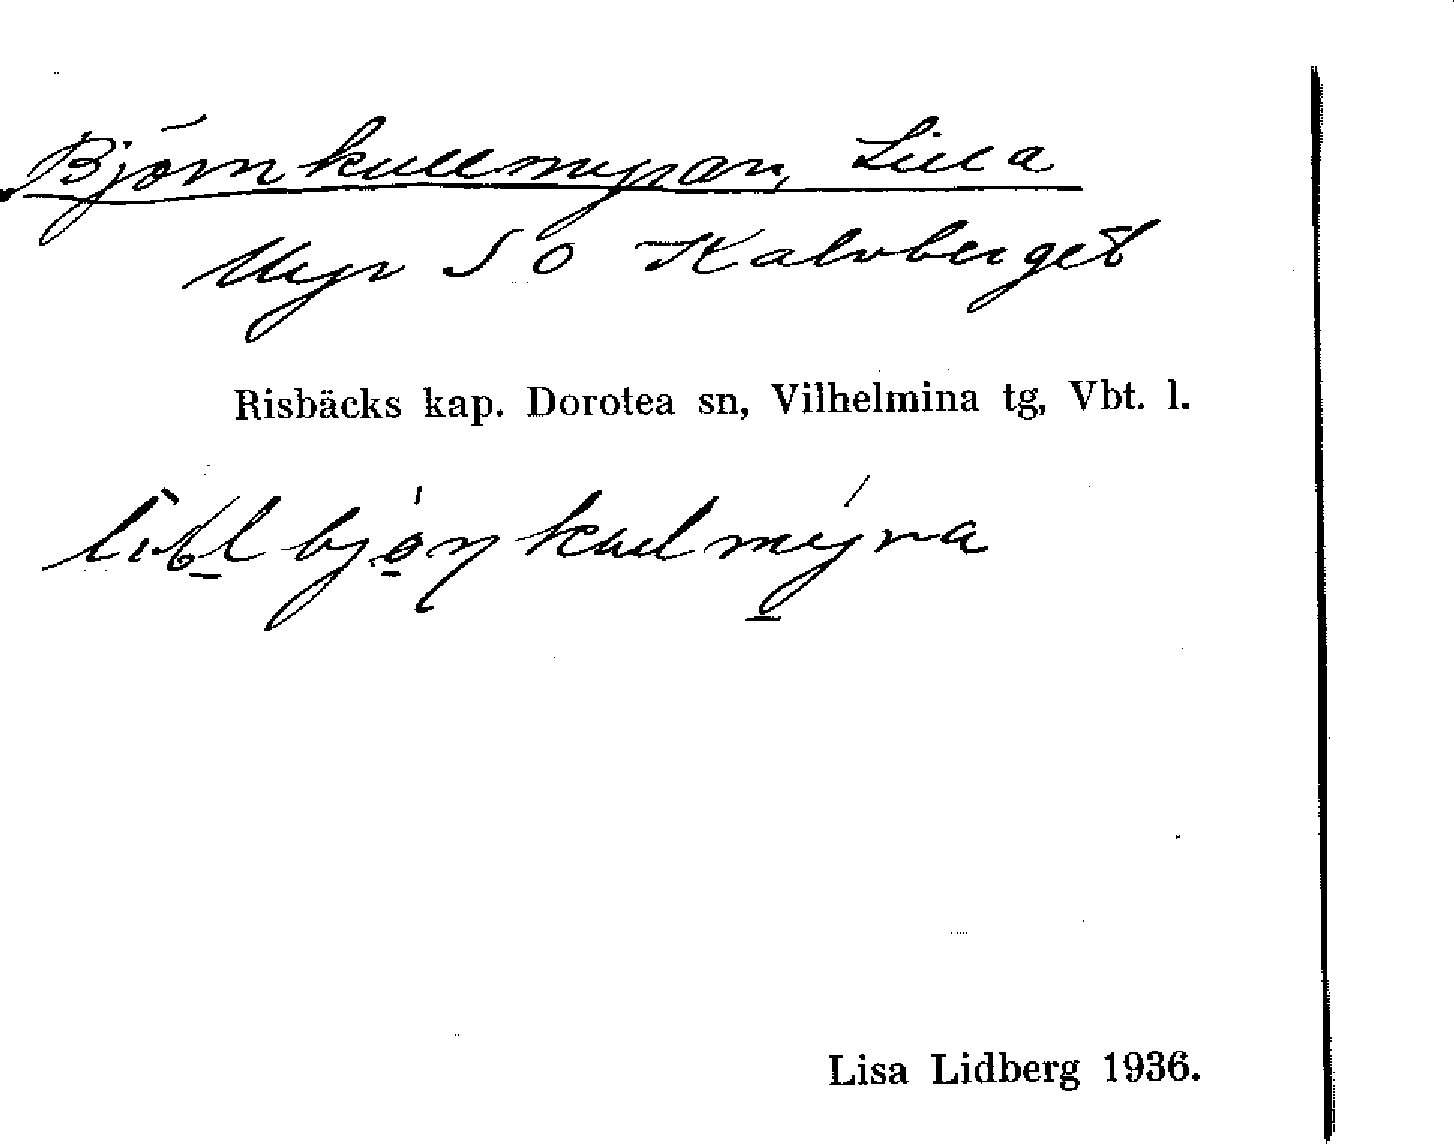 Björnkullmyran, Lilla
Myr SO Kalvberget
Risbäcks kap. Dorotea sn, Vilhelmina tg, Vbt. l.
Lisa Lidberg 1936.